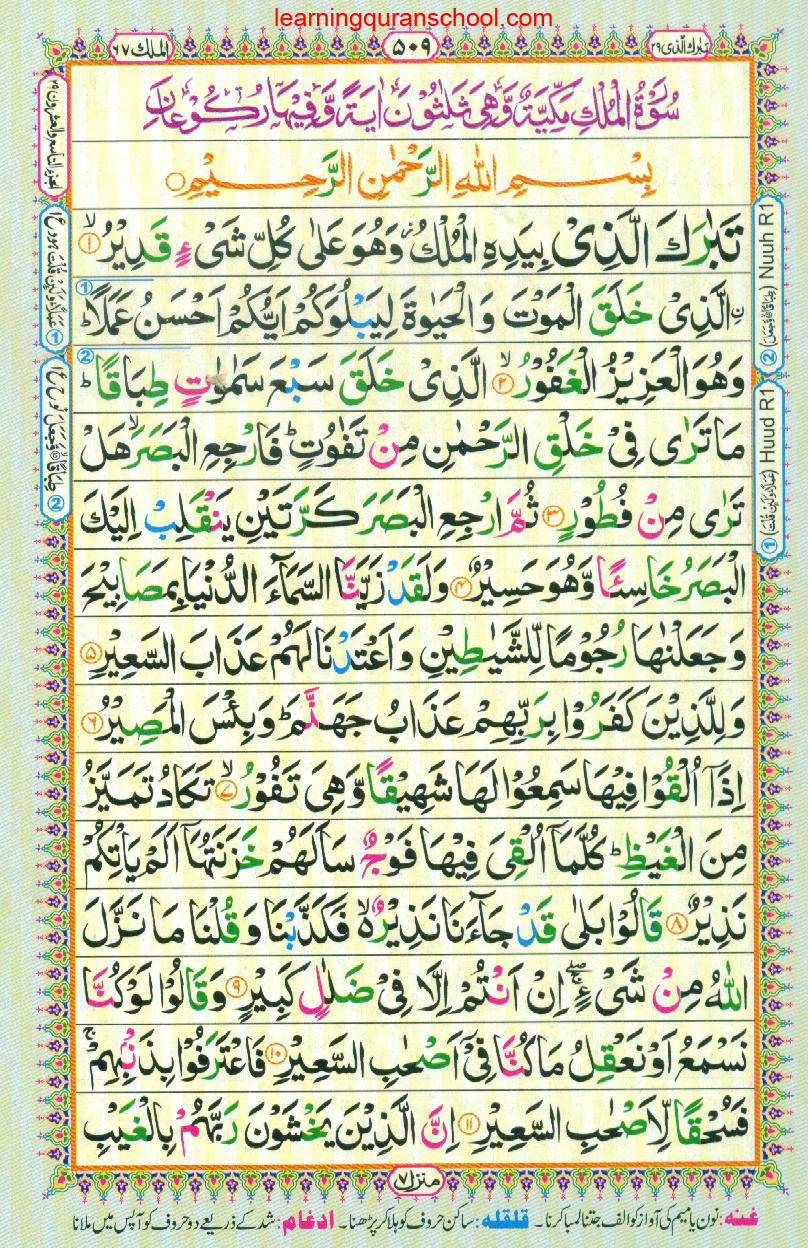 learningquranschool.com
تبٰرك الّذی ٢٩
٥٠٩
الملك ٦٧
سُوْرَةُ الْمُلْكِ مَكِّيَّةٌ وَّهِىَ ثَلٰثُوْنَ اٰيَةً وَّفِيْهَا رُكُوْعَانِ
بِسْمِ اللّٰهِ الرَّحْمٰنِ الرَّحِيْمِ
تَبٰرَكَ الَّذِىْ بِيَدِهِ الْمُلْكُ ز وَهُوَ عَلٰى كُلِّ شَىْءٍ قَدِيْرُ ۙ ١
ۨالَّذِىْ خَلَقَ الْمَوْتَ وَالْحَيٰوةَ لِيَبْلُوَكُمْ اَيُّكُمْ اَحْسَنُ عَمَلًا ؕ
وَهُوَ الْعَزِيْزُ الْغَفُوْرُ ۙ ٢ الَّذِىْ خَلَقَ سَبْعَ سَمٰوٰتٍ طِبَاقًا ؕ
مَا تَرٰى فِىْ خَلْقِ الرَّحْمٰنِ مِنْ تَفٰوُتٍ ؕ فَارْجِعِ الْبَصَرَ ۙ هَلْ
تَرٰى مِنْ فُطُوْرٍ ٣ ثُمَّ ارْجِعِ الْبَصَرَ كَرَّتَيْنِ يَنْقَلِبْ اِلَيْكَ
الْبَصَرُ خَاسِئًا وَّهُوَ حَسِيْرٌ ٤ وَلَقَدْ زَيَّنَّا السَّمَآءَ الدُّنْيَا بِمَصَابِيْحَ
وَجَعَلْنٰهَا رُجُوْمًا لِّلشَّيٰطِيْنِ وَاَعْتَدْنَا لَهُمْ عَذَابَ السَّعِيْرِ ٥
وَلِلَّذِيْنَ كَفَرُوْا بِرَبِّهِمْ عَذَابُ جَهَنَّمَ ؕ وَبِئْسَ الْمَصِيْرُ ٦
اِذَاۤ اُلْقُوْا فِيْهَا سَمِعُوْا لَهَا شَهِيْقًا وَّهِىَ تَفُوْرُ ۙ ٧ تَكَادُ تَمَيَّزُ
مِنَ الْغَيْظِ ؕ كُلَّمَاۤ اُلْقِىَ فِيْهَا فَوْجٌ سَاَلَهُمْ خَزَنَتُهَاۤ اَلَمْ يَاْتِكُمْ
نَذِيْرٌ ٨ قَالُوْا بَلٰى قَدْ جَآءَنَا نَذِيْرٌ ۙ ٥ فَكَذَّبْنَا وَقُلْنَا مَا نَزَّلَ
اللّٰهُ مِنْ شَىْءٍ ۖۚ اِنْ اَنْتُمْ اِلَّا فِىْ ضَلٰلٍ كَبِيْرٍ ٩ وَقَالُوْا لَوْ كُنَّا
نَسْمَعُ اَوْ نَعْقِلُ مَا كُنَّا فِىْۤ اَصْحٰبِ السَّعِيْرِ ١٠ فَاعْتَرَفُوْا بِذَنْۢبِهِمْ ۚ
فَسُحْقًا لِّاَصْحٰبِ السَّعِيْرِ ١١ اِنَّ الَّذِيْنَ يَخْشَوْنَ رَبَّهُمْ بِالْغَيْبِ
② Nuuh R1
① Huud R1
منزل ٧
غنه: نون یا میم کی آواز کو الف جتنا لمبا کرنا ۔ قلقله: ساکن حروف کو ہلا کر پڑھنا ۔ ادغام: شد کے ذریعے دو حروف کو آپس میں ملانا